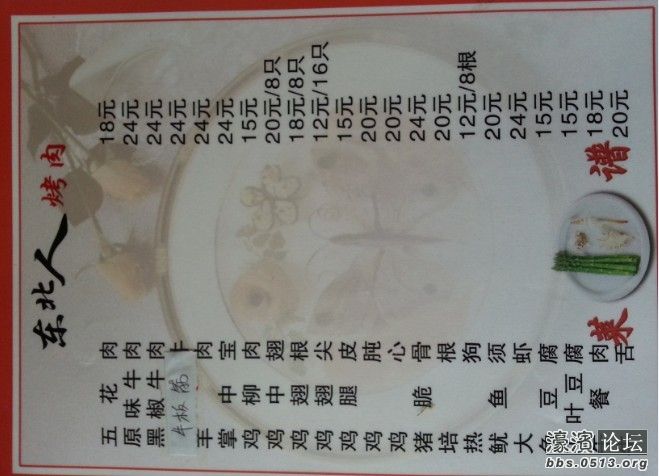 东北人烤肉
菜谱
五花肉 18元
原味牛肉 24元
黑椒牛肉 24元
牛板筋 24元
羊肉 24元
掌中宝 24元
鸡柳肉 15元
鸡中翅 20元/8只
鸡翅根 18元/8只
鸡翅尖 12元/16只
鸡腿皮 15元
鸡肫 20元
鸡心 20元
猪脆骨 24元
培根 20元
热狗 12元/8根
鱿鱼须 20元
大虾 24元
鱼豆腐 15元
叶豆腐 15元
餐肉 18元
舌 20元
濠滨论坛
bbs.0513.org